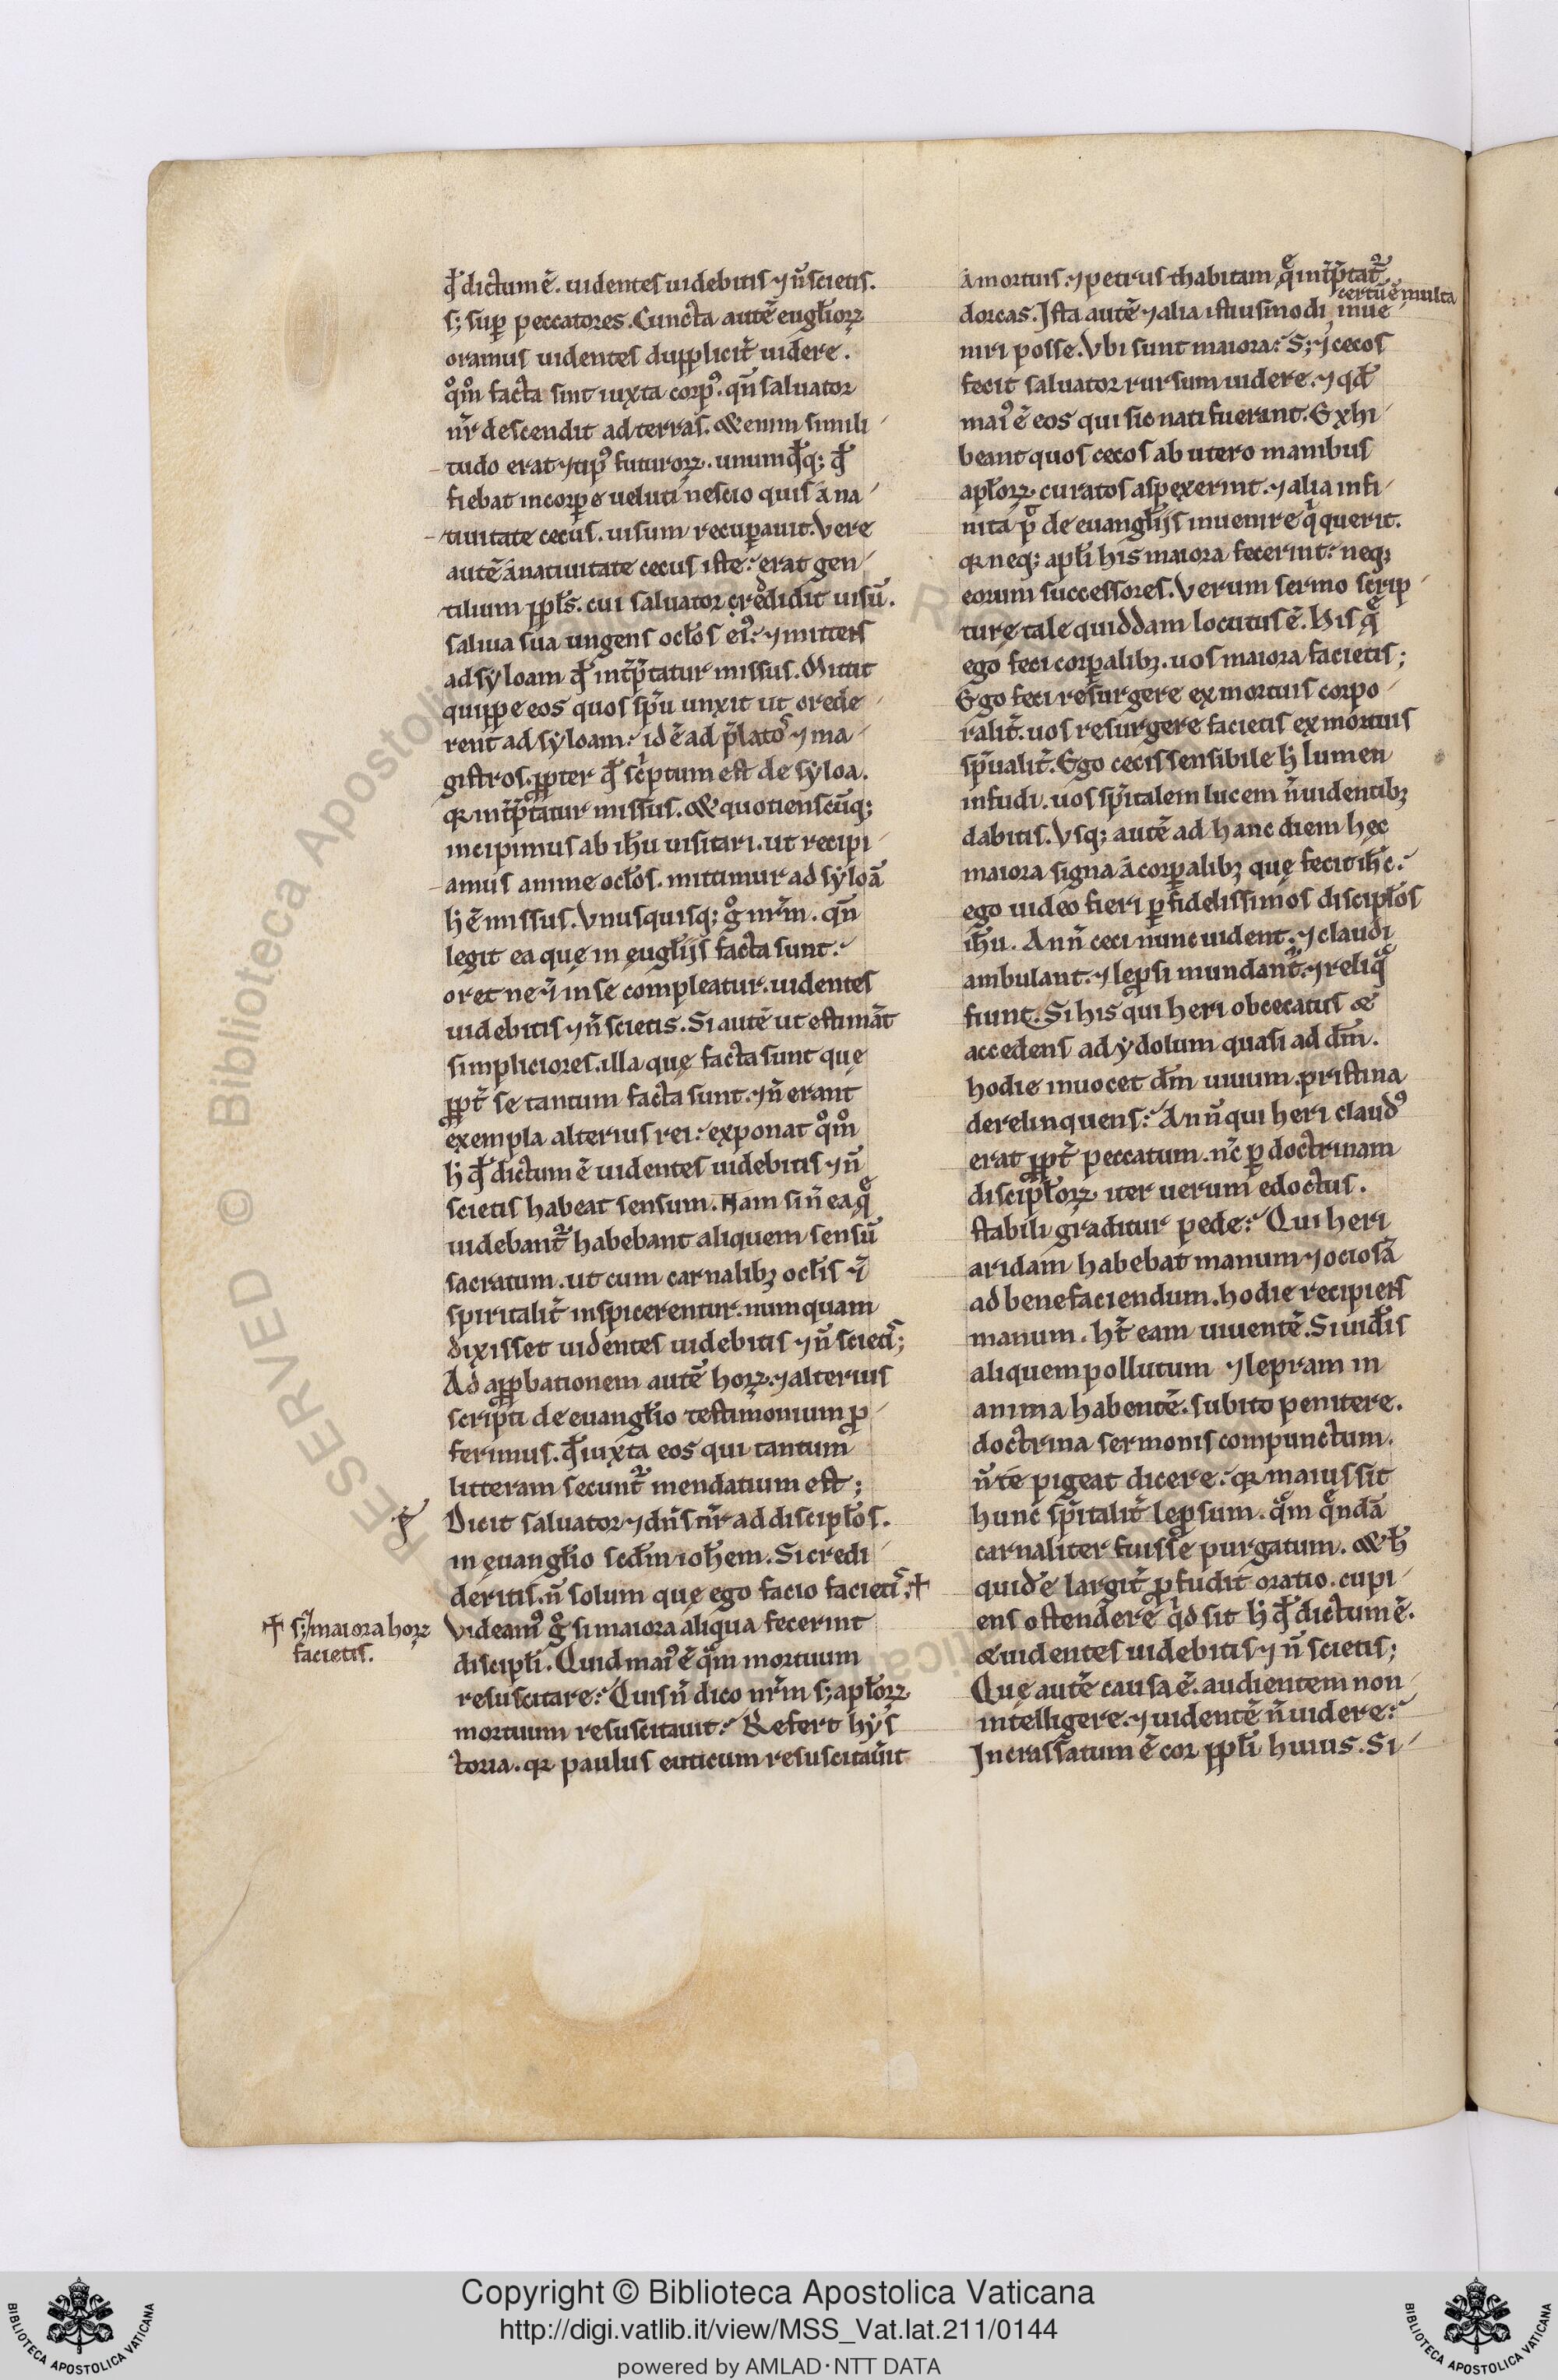 qđ dictum ē. uidentes uidebitis ⁊ n̄ scietis.
s; suꝑ peccatores. Cuncta autē eugłioꝝ
oramus uidentes dupplicit̄ uidere.
qͦm̊ facta sint iuxta corpꝰ. qn̄ saluator
nr̄ descendit ad terras. & enim simili
tudo erat ⁊ tipꝰ futuroꝝ. unumqđq; qđ
fiebat in corpore ueluti nescio quis a na
tiuitate cecus. uisum recuꝑauit. Vere
autē a natiuitate cecus iste. erat gen
tilium ppłs. cui saluator credidit uisū.
saliua sua ungens ocłos eiꝰ. ⁊ mittens
ad syloam qđ int̄p̄tatur missus. Mittit
quippe eos quos sp̄u unxit ut crede
rent ad syloam. id ē ad p̄latos ⁊ ma
gistros. ꝓpter qđ scͥptum est de syloa.
qꝛ int̄p̄tatur missus. & quotienscūq;
incipimus ab ih̄u uisitari. ut recipi
amus anime ocłos. mittimur ad syloā
h̄ ē missus. Vnusquisq; gͦ nr̄m. qn̄
legit ea quę in eugłijs facta sunt.
oret ne ⁊ in se compleatur. uidentes
uidebitis ⁊ n̄ scietis. Si autē ut estimāt
simpliciores. illa quę facta sunt quę
ꝓpt̄ se tantum facta sunt. ⁊ n̄ erant
exempla alterius rei. exponat qͦm̊
h̄ qđ dictum ē uidentes uidebitis ⁊ n̄
scietis habeat sensum. Nam si n̄ ea quę
uidebant᷑ habebant aliquem sensū
sacratum. ut cum carnalibꝫ ocłis ⁊
spiritalit̄ inspicerentur. numquam
dixisset uidentes uidebitis ⁊ n̄ scietis;
Ad apꝓbationem autē hoꝝ. ⁊ alterius
scripti de euangłio testimonium ꝓ
ferimus. qđ iuxta eos qui tantum
litteram secunt᷑ mendatium est;
Dicit saluator ⁊ dn̄s nr̄ ad discipłos.
in euangłio scđm ioħem. Si credi
deritis. n̄ solum quę ego facio facietis; ✝
✝ s; ⁊ maiora hoꝝ
facietis.
Videamꝰ gͦ si maiora aliqua fecerint
discipłi. Quid maiꝰ ē qͣm mortuum
resuscitare? Quis n̄ dico nr̄m s; apłoꝝ
mortuum resuscitauit? Refert hys
toria. qꝛ paulus euticum resuscitauit
a mortuis. ⁊ petrus thabitam quę int̄p̄tat᷑
dorcas. Ista autē ⁊ alia istiusmodi certū ē multa inue
niri posse. Vbi sunt maiora? S; ⁊ cecos
fecit saluator rursum uidere. ⁊ qđ
maiꝰ ē eos qui sic nati fuerant. Exhi
beant quos cecos ab utero manibus
apłoꝝ curatos aspexerint. ⁊ alia infi
nita p̊ de euangłijs inuenire qͥ querit.
qꝛ neq; apłi his maiora fecerint. neq;
eorum successores. Verum sermo scrip
turę tale quiddam locutus ē. His quę
ego feci corꝑalibꝫ. uos maiora facietis;
Ego feci resurgere ex mortuis corpo
ralit̄. uos resurgere facietis ex mortuis
sp̄ualit̄. Ego cecis sensibile h̄ lumen
infudi. uos sp̄italem lucem n̄ uidentibꝫ
dabitis. Vsq; autē ad hanc diem hęc
maiora signa a corꝑalibꝫ quę fecit ih̄c.
ego uideo fieri ꝑ fidelissimos discipłos
ih̄u. An n̄ ceci nunc uident. ⁊ claudi
ambulant. ⁊ leprosi mundant᷑. ⁊ reliquę
fiunt. Si his qui heri obcecatus
accedens ad ydolum quasi ad dm̄.
hodie inuocet dm̄ uiuum. pristina
derelinquens? An n̄ qui heri claudꝰ
erat ꝓpt̄ peccatum. nc̄ ꝑ doctrinam
discipłoꝝ iter uerum edoctus.
stabili graditur pede? Qui heri
aridam habebat manum ⁊ ociosā
ad benefaciendum. hodie recipiens
manum. ht̄ eam uiuentē. Si uiđis
aliquem pollutum ⁊ lepram in
anima habentē. subito penitere.
doctrina sermonis compunctum.
n̄ te pigeat dicere. qꝛ maius sit
hunc sp̄italit̄ leprosum. qͣm qͦndā
carnaliter fuisse purgatum. & h̄
quidē largit̄ ꝓfudit oratio. cupi
ens ostendere qͥd sit h̄ qđ dictum ē.
uidentes uidebitis ⁊ n̄ scietis;
Quę autē causa ē. audientem non
intelligere. ⁊ uidentē n̄ uidere?
Incrassatum ē cor ppłi huius. Si
Copyright © Biblioteca Apostolica Vaticana
http://digi.vatlib.it/view/MSS_Vat.lat.211/0144
powered by AMLAD·NTT DATA
BIBLIOTECA APOSTOLICA VATICANA
BIBLIOTECA APOSTOLICA VATICANA